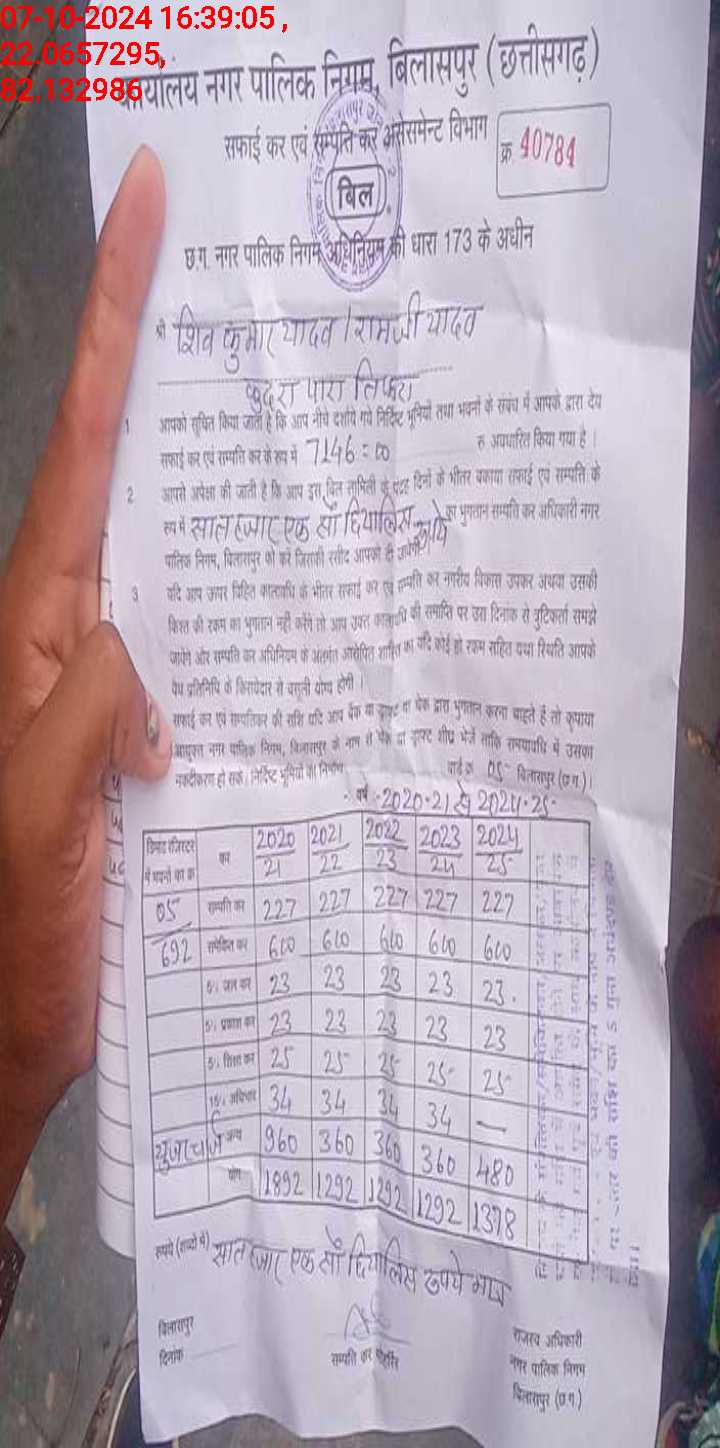 07-10-2024 16:39:05 ,
22.0657295,
82.132986
कार्यालय नगर पालिक निगम, बिलासपुर (छत्तीसगढ़)
सफाई कर एवं सम्पत्ति कर असेसमेन्ट विभाग
क्र. 40784
बिल
छ.ग. नगर पालिक निगम अधिनियम की धारा 173 के अधीन
श्री शिव कुमार यादव / रामजी यादव
कुदरा पारा तिफरा
1 आपको सूचित किया जाता है कि आप नीचे दर्शाये गये निर्दिष्ट भूमियों तथा भवनों के संबंध में आपके द्वारा देय
सफाई कर एवं सम्पत्ति कर के रूप में 7146=00 रु अवधारित किया गया है।
2 आपसे अपेक्षा की जाती है कि आप इस बिल तामिली के पंद्रह दिनों के भीतर बकाया सफाई एवं सम्पत्ति के
रूप में सात हजार एक सौ छियालिस रुपये का भुगतान सम्पत्ति कर अधिकारी नगर
पालिक निगम, बिलासपुर को करें जिसकी रसीद आपको दी जायेगी
3 यदि आप ऊपर विहित कालावधि के भीतर सफाई कर एवं सम्पत्ति कर नगरीय विकास उपकर अथवा उसकी
किस्त की रकम का भुगतान नहीं करेंगे तो आप उक्त कालावधि की समाप्ति पर उस दिनांक से त्रुटिकर्ता समझे
जायेंगे और सम्पत्ति कर अधिनियम के अंतर्गत आरोपित शास्ति का यदि कोई हो रकम सहित यथा स्थिति आपके
वैध प्रतिनिधि के किरायेदार से वसूली योग्य होगी।
सफाई कर एवं सम्पत्तिकर की राशि यदि आप बैंक या ड्राफ्ट या चेक द्वारा भुगतान करना चाहते हैं तो कृपया
आयुक्त नगर पालिक निगम, बिलासपुर के नाम से चेक या ड्राफ्ट शीघ्र भेजें ताकि समयावधि में उसका
नकदीकरण हो सके। निर्दिष्ट भूमियों का निर्माण वार्ड क्र 05 बिलासपुर (छ.ग.)।
वर्ष -2020-21 से 2024-25-
डिमांड रजिस्टर में भवनों का क्र कर 2020/21 2021/22 2022/23 2023/24 2024/25
05 सम्पत्ति कर 227 227 227 227 227
692 समेकित कर 600 600 600 600 600
5% जल कर 23 23 23 23 23.
5% प्रकाश कर 23 23 23 23 23
5% शिक्षा कर 25 25 25 25 25
15% अधिभार 34 34 34 34 —
युजर चार्ज अन्य 960 360 360 360 480
योग 1892 1292 1292 1292 1378
रूपये (शब्दों में) सात हजार एक सौ छियालिस रुपये मात्र
बिलासपुर
दिनांक
सम्पत्ति कर मोहर्रिर
राजस्व अधिकारी
नगर पालिक निगम
बिलासपुर (छ.ग.)